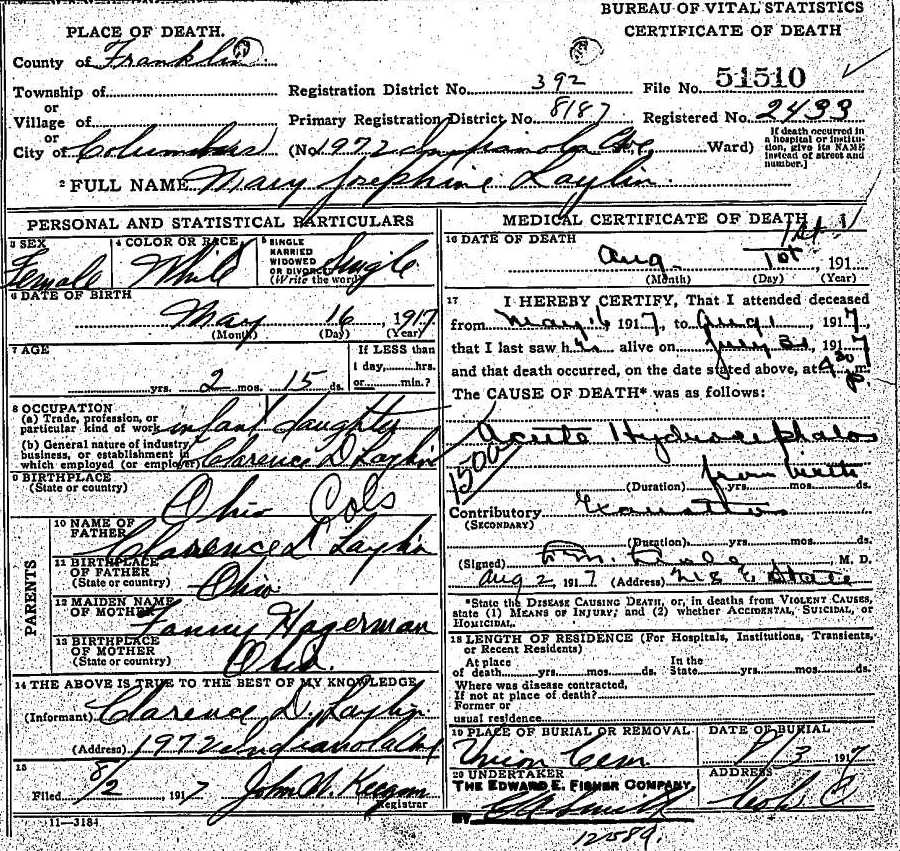 BUREAU OF VITAL STATISTICS
CERTIFICATE OF DEATH
PLACE OF DEATH.
County of Franklin
Township of
or
Village of
or
City of Columbus
Registration District No. 392
File No. 51510
Primary Registration District No. 8187
Registered No. 2433
(No. 1972 Indianola Ave Ward)
If death occurred in a hospital or institution, give its NAME instead of street and number.]
2 FULL NAME Mary Josephine Laylin
PERSONAL AND STATISTICAL PARTICULARS
3 SEX
Female
4 COLOR OR RACE
White
5 SINGLE MARRIED WIDOWED OR DIVORCED (Write the word)
Single
6 DATE OF BIRTH
May 16, 1917
(Month) (Day) (Year)
7 AGE
yrs. 2 mos. 15 ds.
If LESS than
1 day, hrs.
or min.?
8 OCCUPATION
(a) Trade, profession, or
particular kind of work infant daughter
(b) General nature of industry,
business, or establishment in
which employed (or employer) Clarence D Laylin
9 BIRTHPLACE
(State or country)
Ohio Cols
PARENTS
10 NAME OF FATHER
Clarence D Laylin
11 BIRTHPLACE OF FATHER
(State or country)
Ohio
12 MAIDEN NAME OF MOTHER
Fanny Hagerman
13 BIRTHPLACE OF MOTHER
(State or country)
Ohio.
14 THE ABOVE IS TRUE TO THE BEST OF MY KNOWLEDGE
(Informant) Clarence D. Laylin
(Address) 1972 Indianola Ave
15
Filed 8/2, 1917
Registrar
11—3184
MEDICAL CERTIFICATE OF DEATH
16 DATE OF DEATH
Aug. 1st, 191
(Month) (Day) (Year)
17 I HEREBY CERTIFY, That I attended deceased
from May 16 1917, to Aug 1, 1917
that I last saw h alive on July 31, 1917
and that death occurred, on the date stated above, at 4 30 P. m.
The CAUSE OF DEATH* was as follows:
Acute Hydrocephalos
1500
from birth
(Duration) yrs. mos. ds.
Contributory
(SECONDARY)
(Duration) yrs. mos. ds.
(Signed) M. D.
Aug 2, 1917 (Address) State
*State the DISEASE CAUSING DEATH, or, in deaths from VIOLENT CAUSES,
state (1) MEANS OF INJURY; and (2) whether ACCIDENTAL, SUICIDAL, or
HOMICIDAL.
18 LENGTH OF RESIDENCE (For Hospitals, Institutions, Transients,
or Recent Residents)
At place
of death yrs. mos. ds.
In the
State yrs. mos. ds.
Where was disease contracted,
If not at place of death?
Former or
usual residence
19 PLACE OF BURIAL OR REMOVAL
Union Cem
DATE OF BURIAL
8/3 1917
20 UNDERTAKER
THE EDWARD E. FISHER COMPANY,
BY
ADDRESS
Cols O
1258A.